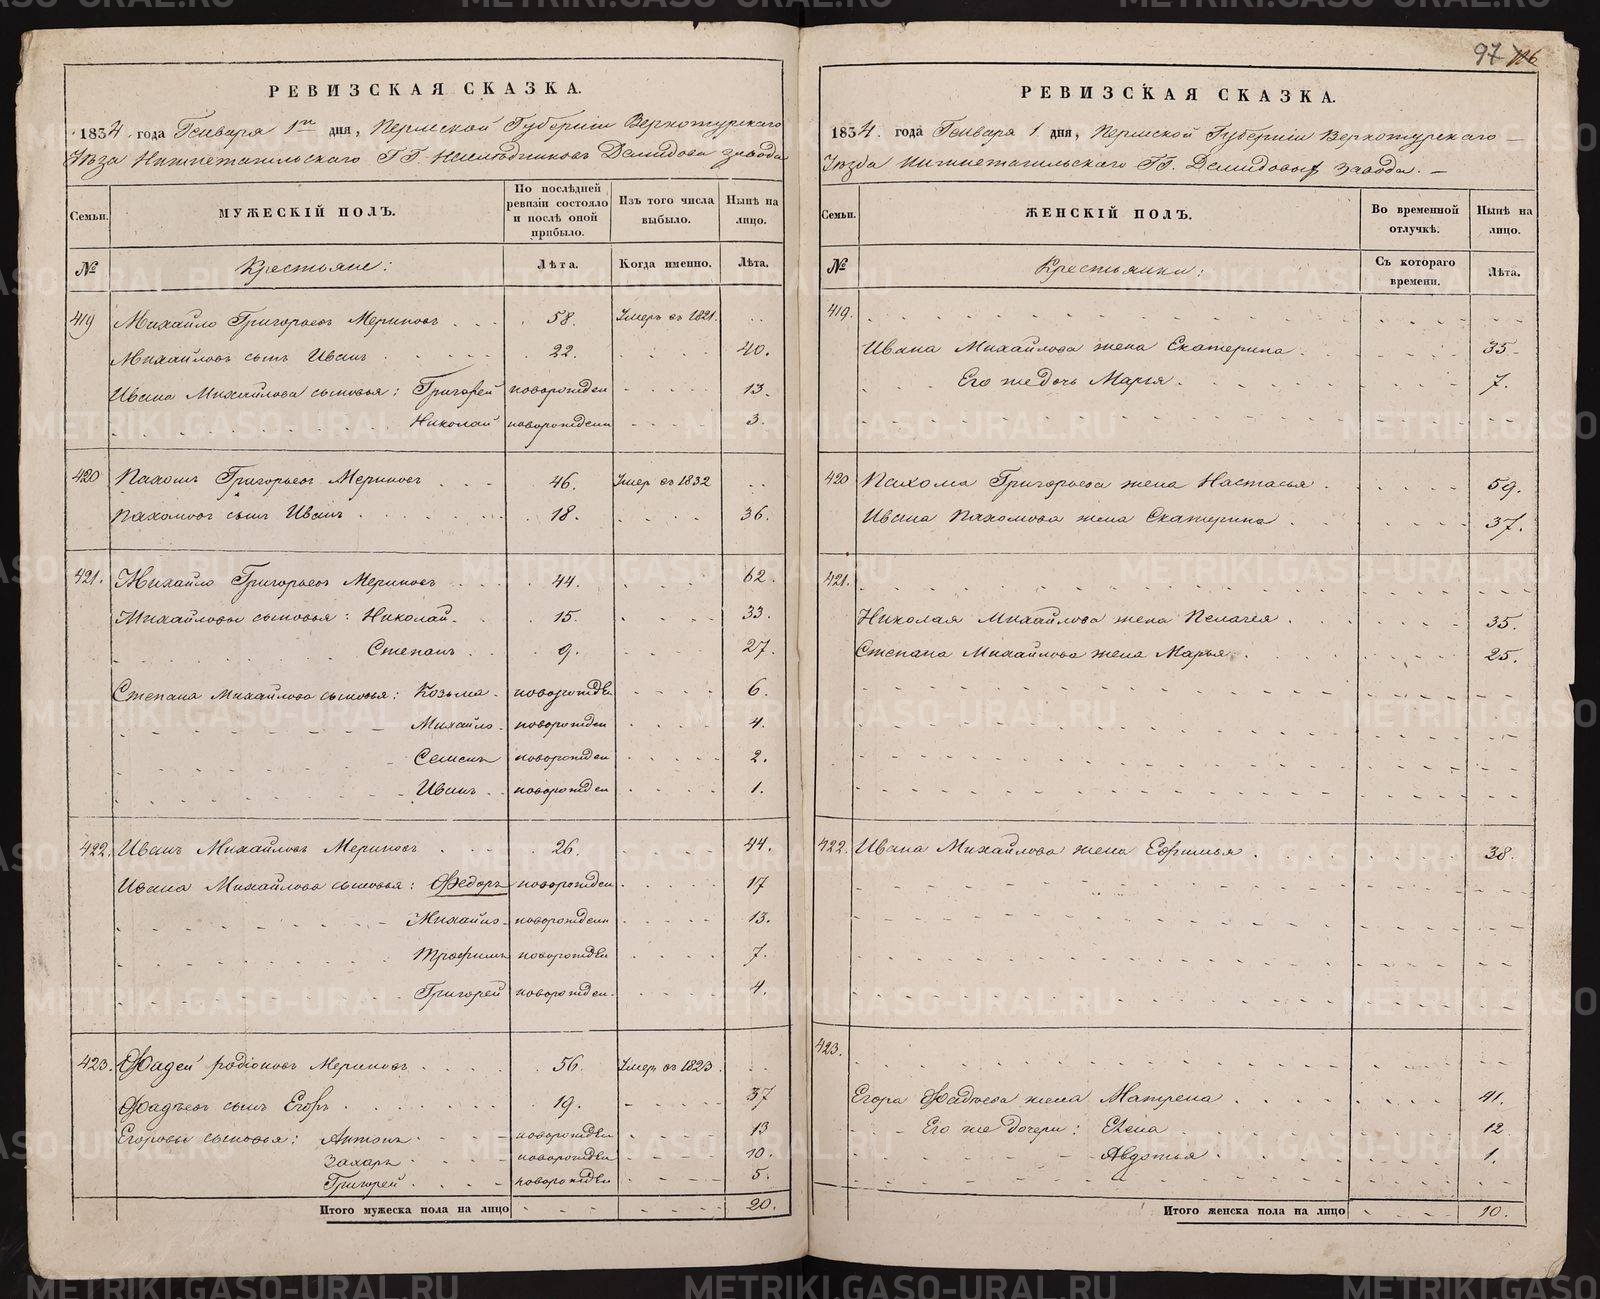 РЕВИЗСКАЯ СКАЗКА.
1834 года Генваря 1го дня, Пермской Губернии Верхотурскаго
Уѣзда Нижнетагильскаго ГГ. Наслѣдниковъ Демидова завода
Семьи.
МУЖЕСКІЙ ПОЛЪ.
По послѣдней ревизіи состояло и послѣ оной прибыло.
Изъ того числа выбыло.
Нынѣ на лицо.
№
Крестьяне:
Лѣта.
Когда именно.
Лѣта.
419 Михайло Григорьевъ Мериновъ 58. Умеръ въ 1821.
Михайловъ сынъ Иванъ 22. 40.
Ивана Михайлова сыновья: Григорей новорожден 13.
Николай новорожденн 3.
420 Пахомъ Григорьевъ Мериновъ 46. Умер въ 1832
Пахомовъ сынъ Иванъ 18. 36.
421. Михайло Григорьевъ Мериновъ 44. 62.
Михайловы сыновья: Николай 15. 33.
Степанъ 9. 27.
Степана Михайлова сыновья: Козьма новорожден 6.
Михайло новорожден 4.
Семенъ новорожден 2.
Иванъ новорожден 1.
422. Иванъ Михайловъ Мериновъ 26. 44.
Ивана Михайлова сыновья: Федоръ новорожден 17
Михайло новорожденн 13.
Трофимъ новорожден 7.
Григорей новорожден. 4.
423. Фадей Родіоновъ Мериновъ 56. Умеръ въ 1823.
Фадѣевъ сынъ Егоръ 19. 37
Егоровы сыновья: Антонъ новорожден 13
Захаръ новорожден 10.
Григорей новорожден 5.
Итого мужеска пола на лицо 20.
97 126
РЕВИЗСКАЯ СКАЗКА.
1834. года Генваря 1 дня, Пермской Губерніи Верхотурскаго
Уѣзда Нижнетагильскаго ГГ. Демидовыхъ завода.
Семьи.
ЖЕНСКІЙ ПОЛЪ.
Во временной отлучкѣ.
Нынѣ на лицо.
№
Крестьянки:
Съ котораго времени.
Лѣта.
419.
Ивана Михайлова жена Екатерина 35
Его же дочь Марья 7.
420 Пахома Григорьева жена Настасья 59.
Ивана Пахомова жена Екатерина 37.
421.
Николая Михайлова жена Пелагея 35.
Степана Михайлова жена Марья 25.
422. Ивана Михайлова жена Ефимья 38.
423.
Егора Фадѣева жена Матрена 41.
Его же дочери: Елена 12
Авдотья 1.
Итого женска пола на лицо 10.
METRIKI.GASO-URAL.RU